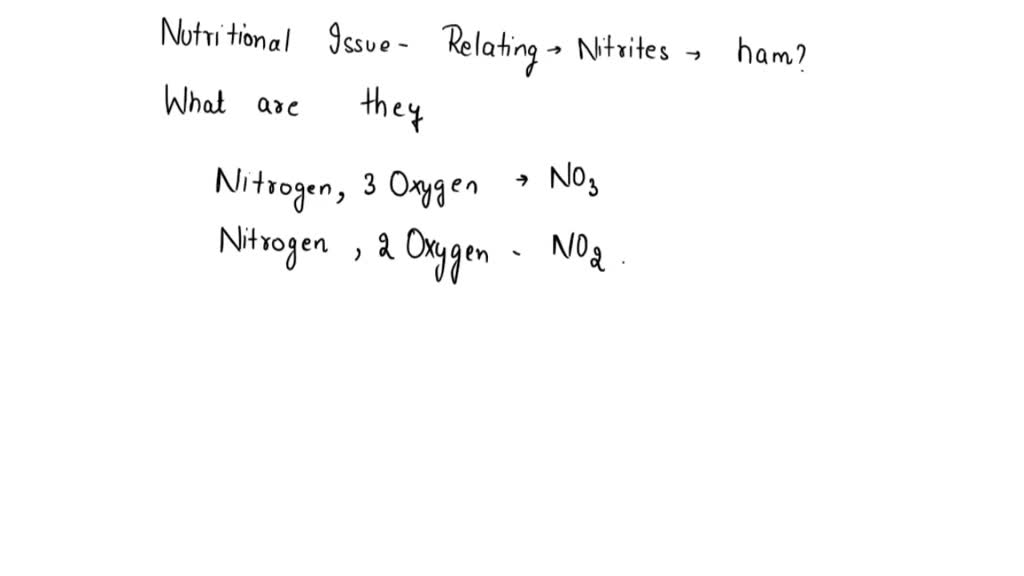 Nutritional Issue - Relating → Nitrites → ham?
What are they
Nitrogen, 3 Oxygen → NO₃
Nitrogen, 2 Oxygen - NO₂.